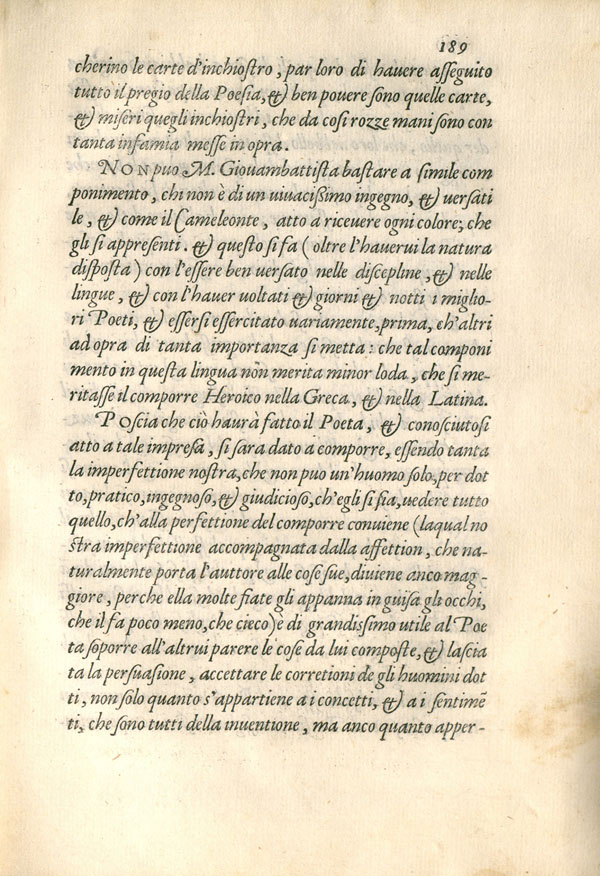 189
cherino le carte d'inchiostro, par loro di hauere asseguito
tutto il pregio della Poesia, & ben pouere sono quelle carte,
& miseri quegli inchiostri, che da cosi rozze mani sono con
tanta infamia messe in opra.
NON puo M. Giouambattista bastare a simile com
ponimento, chi non è di un uiuacissimo ingegno, & uersati
le, & come il Cameleonte, atto a riceuere ogni colore, che
gli si appresenti. & questo si fa (oltre l'hauerui la natura
disposta) con l'essere ben uersato nelle discepline, & nelle
lingue, & con l'hauer uoltati & giorni & notti i miglio-
ri Poeti, & essersi essercitato uariamente, prima, ch'altri
ad opra di tanta importanza si metta: che tal componi
mento in questa lingua non merita minor loda, che si me-
ritasse il comporre Heroico nella Greca, & nella Latina.
POscia che ciò haurà fatto il Poeta, & conosciutosi
atto a tale impresa, si sara dato a comporre, essendo tanta
la imperfettione nostra, che non puo un'huomo solo, per dot
to, pratico, ingegnoso, & giudicioso, ch'egli si sia, uedere tutto
quello, ch'alla perfettione del comporre conuiene (laqual no
stra imperfettione accompagnata dalla affettion, che na-
turalmente porta l'auttore alle cose sue, diuiene anco mag-
giore, perche ella molte fiate gli appanna in guisa gli occhi,
che il fa poco meno, che cieco) è di grandissimo utile al Poe
ta soporre all'altrui parere le cose da lui composte, & lascia
ta la persuasione, accettare le corretioni de gli huomini dot
ti, non solo quanto s'appartiene a i concetti, & a i sentimẽ
ti, che sono tutti della inuentione, ma anco quanto apper-